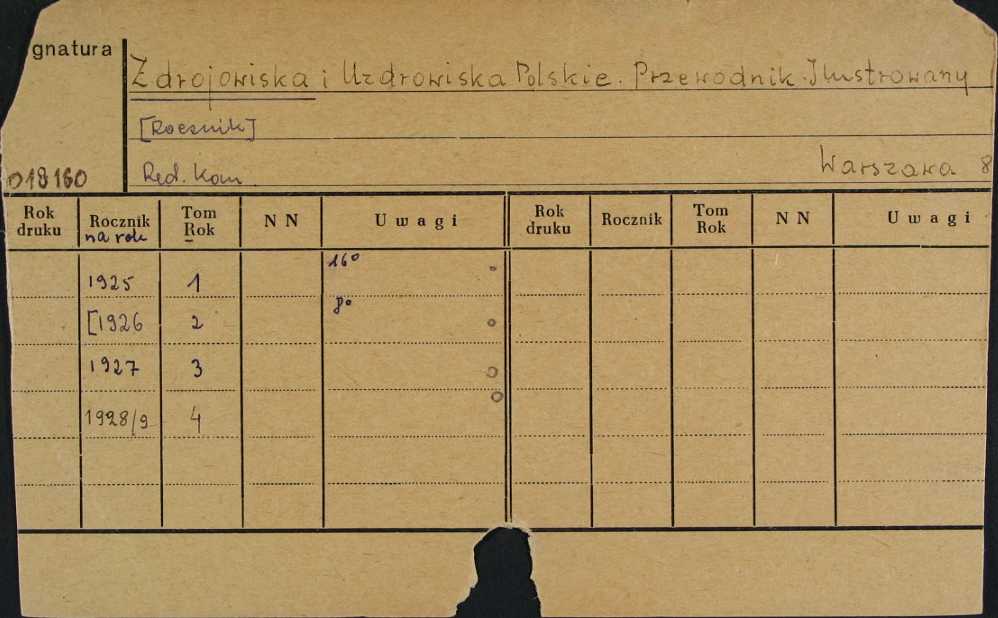 gnatura
Zdrojowiska i Uzdrowiska Polskie. Przewodnik Ilustrowany
[Rocznik]
018160 Red. Kom. Warszawa 8
Rok druku Rocznik na rok Tom Rok N N Uwagi Rok druku Rocznik Tom Rok N N Uwagi
1925 1 16°
[1926 2 8°
1927 3
1928/9 4